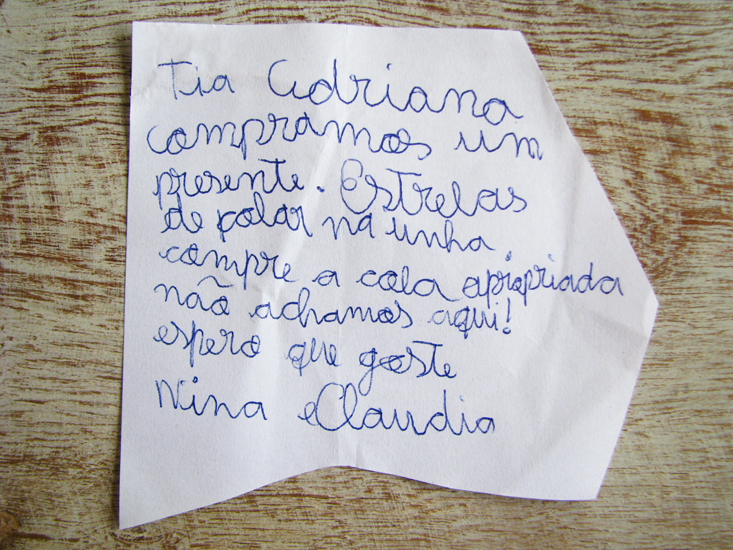 Tia Adriana
compramos um
presente. Estrelas
de colar na unha
compre a cola apropriada
não achamos aqui!
espero que goste
Nina e Claudia